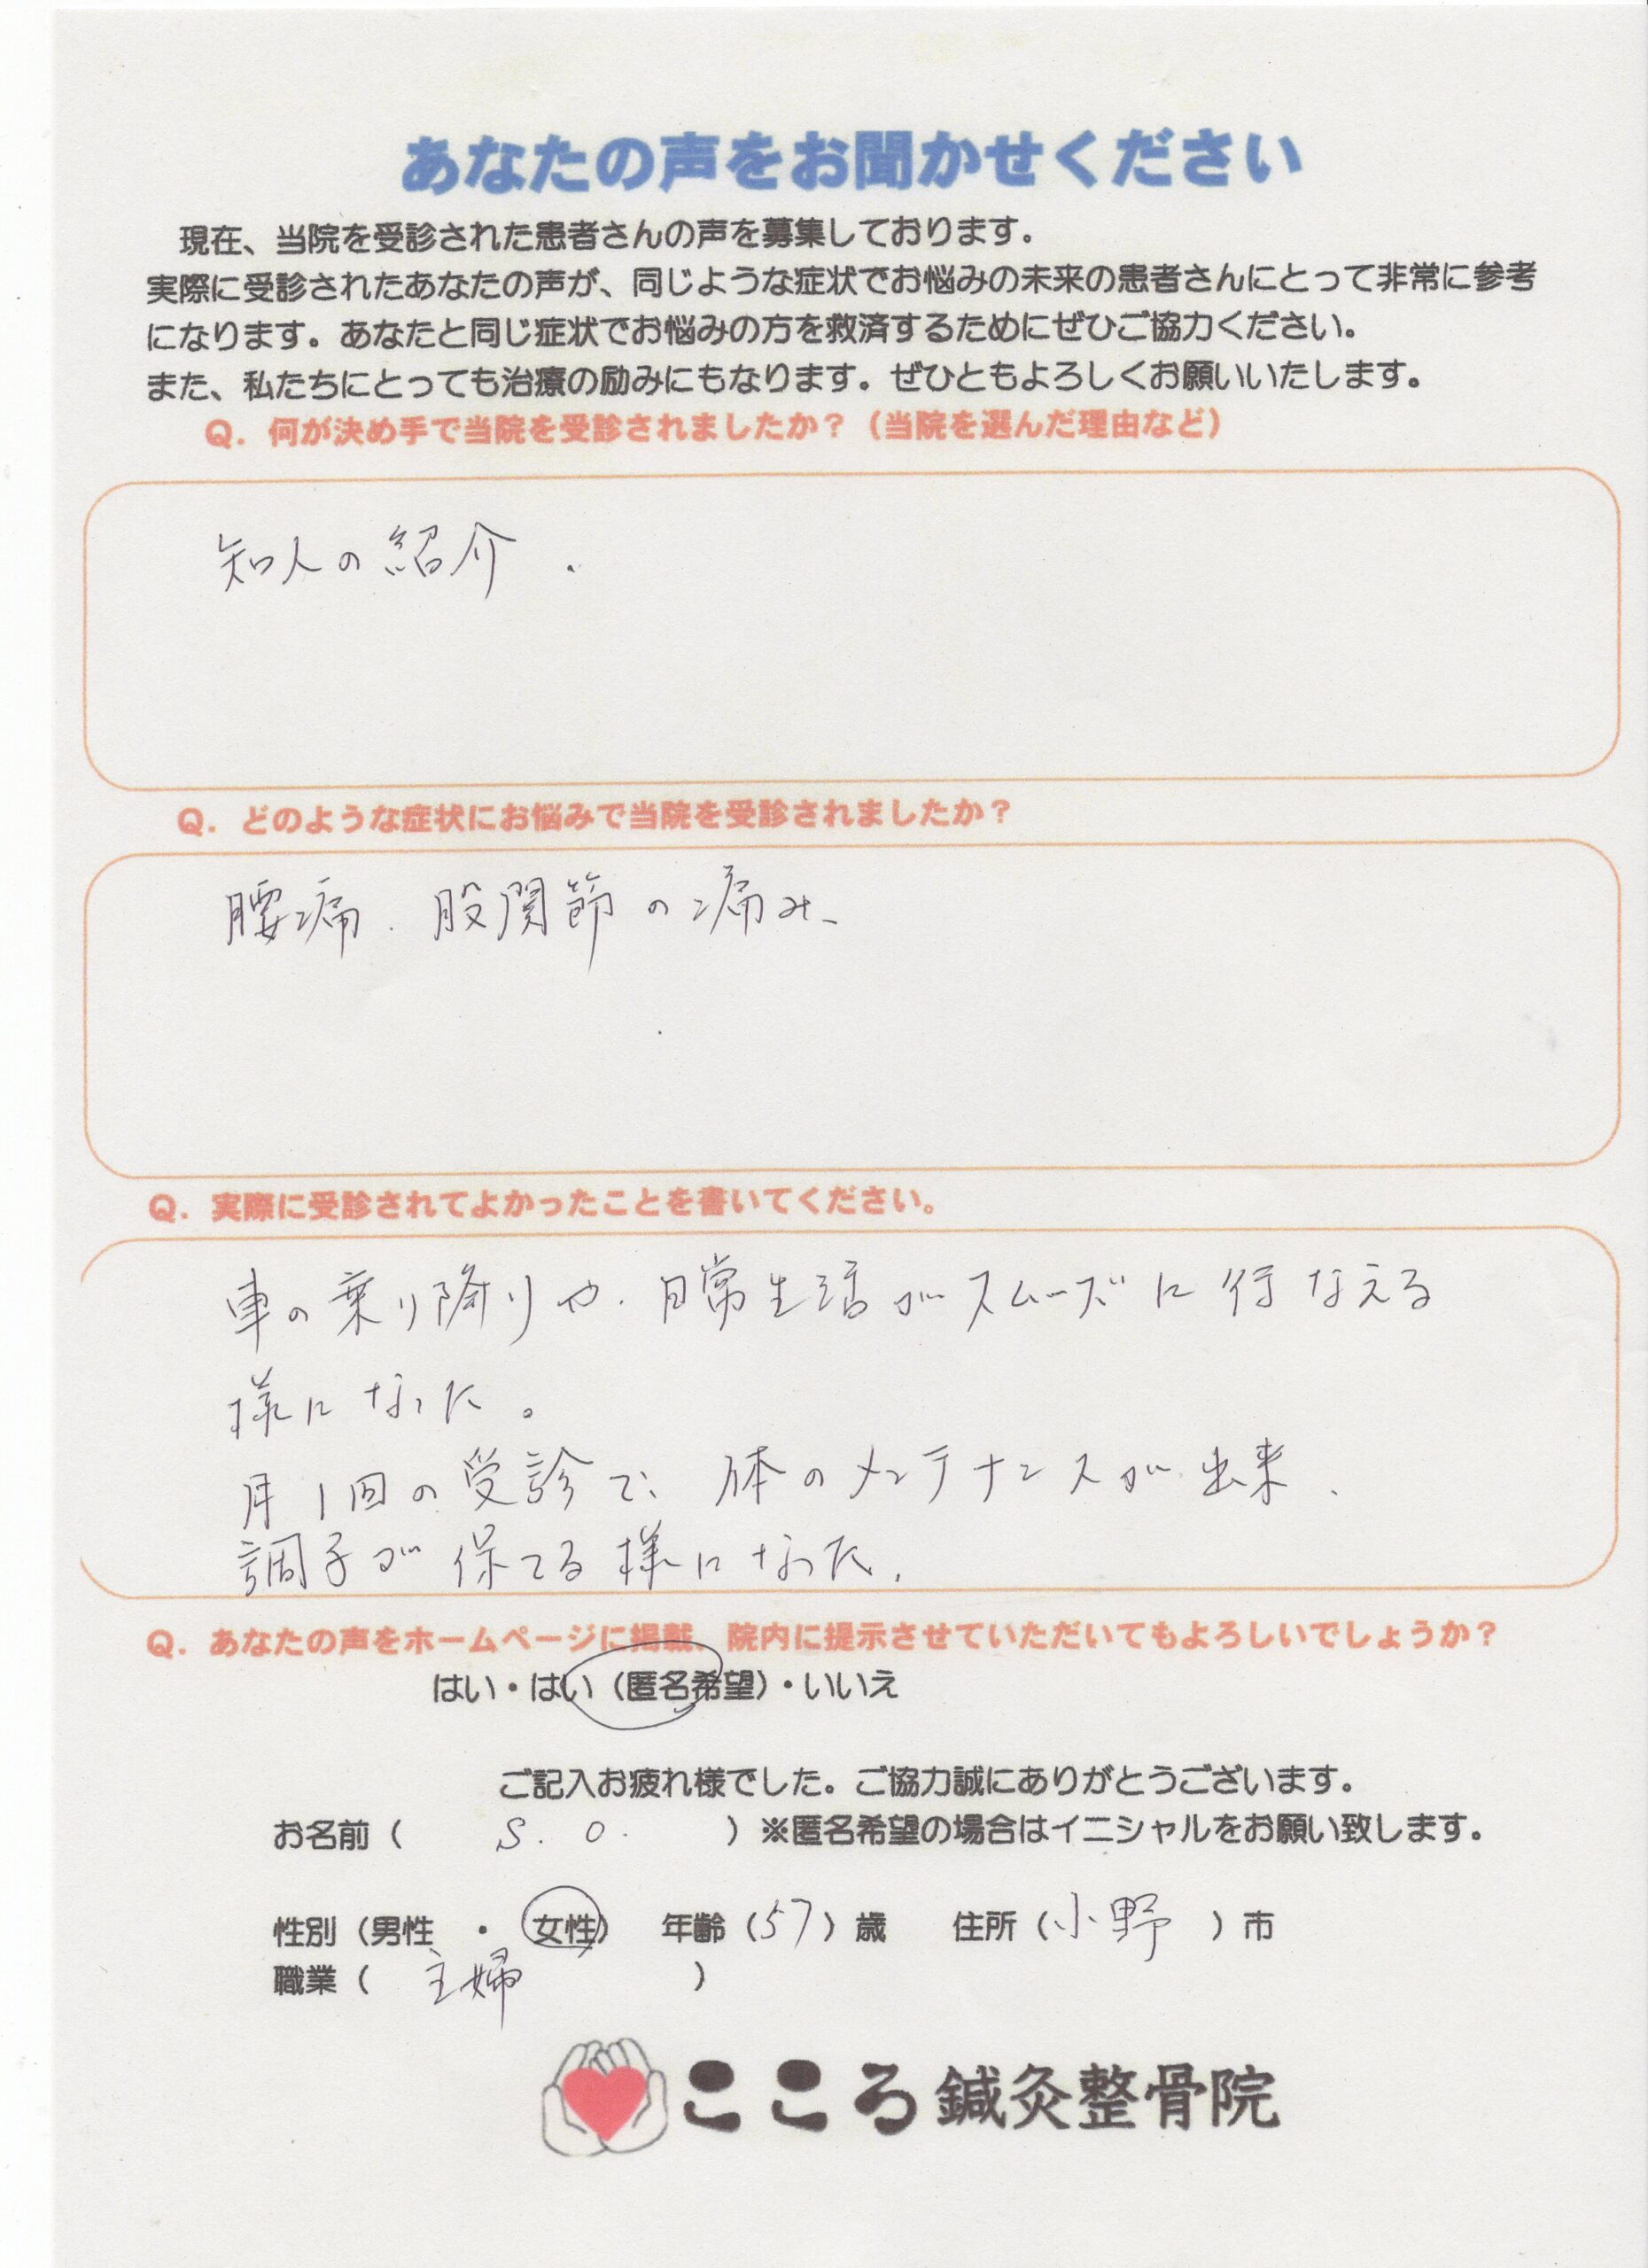 あなたの声をお聞かせください
現在、当院を受診された患者さんの声を募集しております。
実際に受診されたあなたの声が、同じような症状でお悩みの未来の患者さんにとって非常に参考
になります。あなたと同じ症状でお悩みの方を救済するためにぜひご協力ください。
また、私たちにとっても治療の励みにもなります。ぜひともよろしくお願いいたします。
Q. 何が決め手で当院を受診されましたか？（当院を選んだ理由など）
知人の紹介.
Q. どのような症状にお悩みで当院を受診されましたか？
腰痛、股関節の痛み
Q. 実際に受診されてよかったことを書いてください。
車の乗り降りや、日常生活がスムーズに行なえる
様になった。
月1回の受診で、体のメンテナンスが出来、
調子が保てる様になった.
Q. あなたの声をホームページに掲載、院内に提示させていただいてもよろしいでしょうか？
はい・はい（匿名希望）・いいえ
ご記入お疲れ様でした。ご協力誠にありがとうございます。
お名前（ S. O. ）※匿名希望の場合はイニシャルをお願い致します。
性別（男性 ・ 女性） 年齢（57）歳 住所（小野）市
職業（ 主婦 ）
こころ鍼灸整骨院